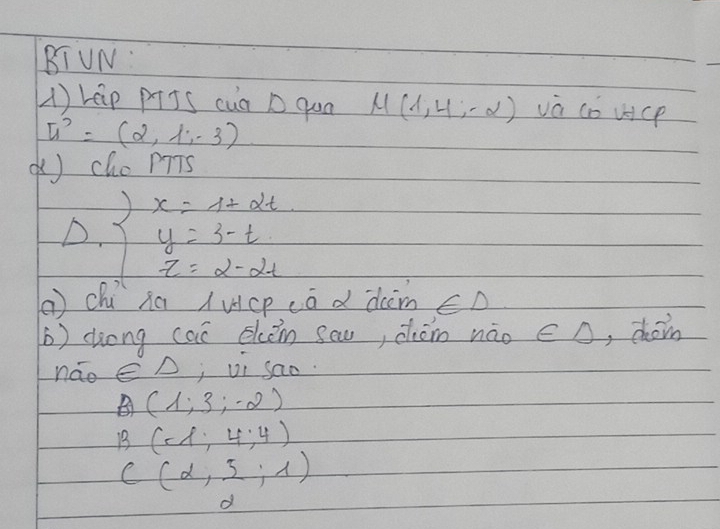 BTVN:
1) Lập PTTS của Δ qua M(1,4,-2) và có VTCP
u = (2, 1; -3)
2) cho PTTS
x = 1+2t
Δ. y = 3-t
z = 2-2t
a) chỉ ra 1 VTCP và 2 điểm ∈ Δ
b) trong các điểm sau, điểm nào ∈ Δ, điểm
nào ∈ Δ, vì sao.
A (1; 3; -2)
B (-1; 4; 4)
C (2, 5/2; 1)